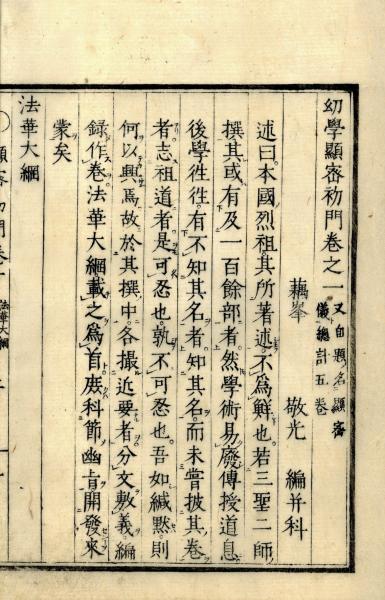 幼學顯密初門卷之一 又自題名顯密儀總計五卷
蕅峯 敬光 編并科
述曰本國烈祖其所著述不爲鮮也若三聖二師
撰其或有及一百餘部者然學術易廢傳授道息
後學徃徃有不知其名者知其名而未嘗披其卷
者志祖道者是可忍也孰不可忍也吾如緘默則
何以興焉故於其撰中各撮近要者分文敷義編
錄作卷法華大綱載之爲首庻科節幽㫖開發來
蒙矣
法華大綱